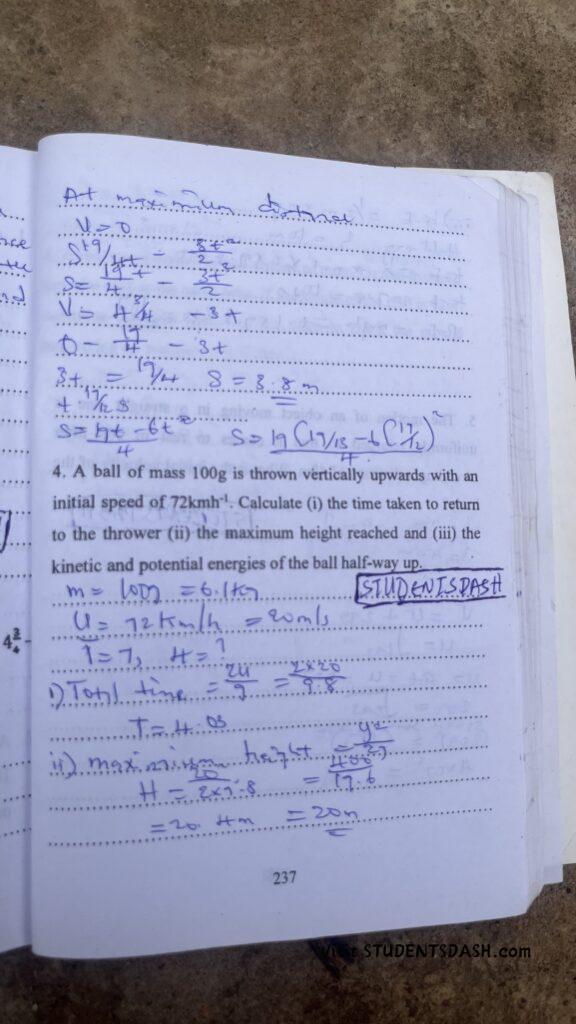 At maximum distance
V = 0
S = 19/4 t - 3t²/2
S = 19t/4 - 3t²/2
V = 4 3/4 - 3t
0 - 19/4 - 3t
3t = 19/4 S = 3.8m
t 19/12 s
S = 19t - 6t²/4 S = 19(19/12) - 6(19/12)²/4
4. A ball of mass 100g is thrown vertically upwards with an
initial speed of 72kmh⁻¹. Calculate (i) the time taken to return
to the thrower (ii) the maximum height reached and (iii) the
kinetic and potential energies of the ball half-way up.
m = 100g = 0.1kg STUDENTSDASH
U = 72km/h = 20m/s
T = ?, H = ?
i) Total time = 2U/g = 2x20/9.8
T = 4.0s
ii) maximum height = U²/2g
H = 20/2x9.8 = 400/19.6
= 20.4m = 20m
237
Visit STUDENTSDASH.com
4 3/4 -